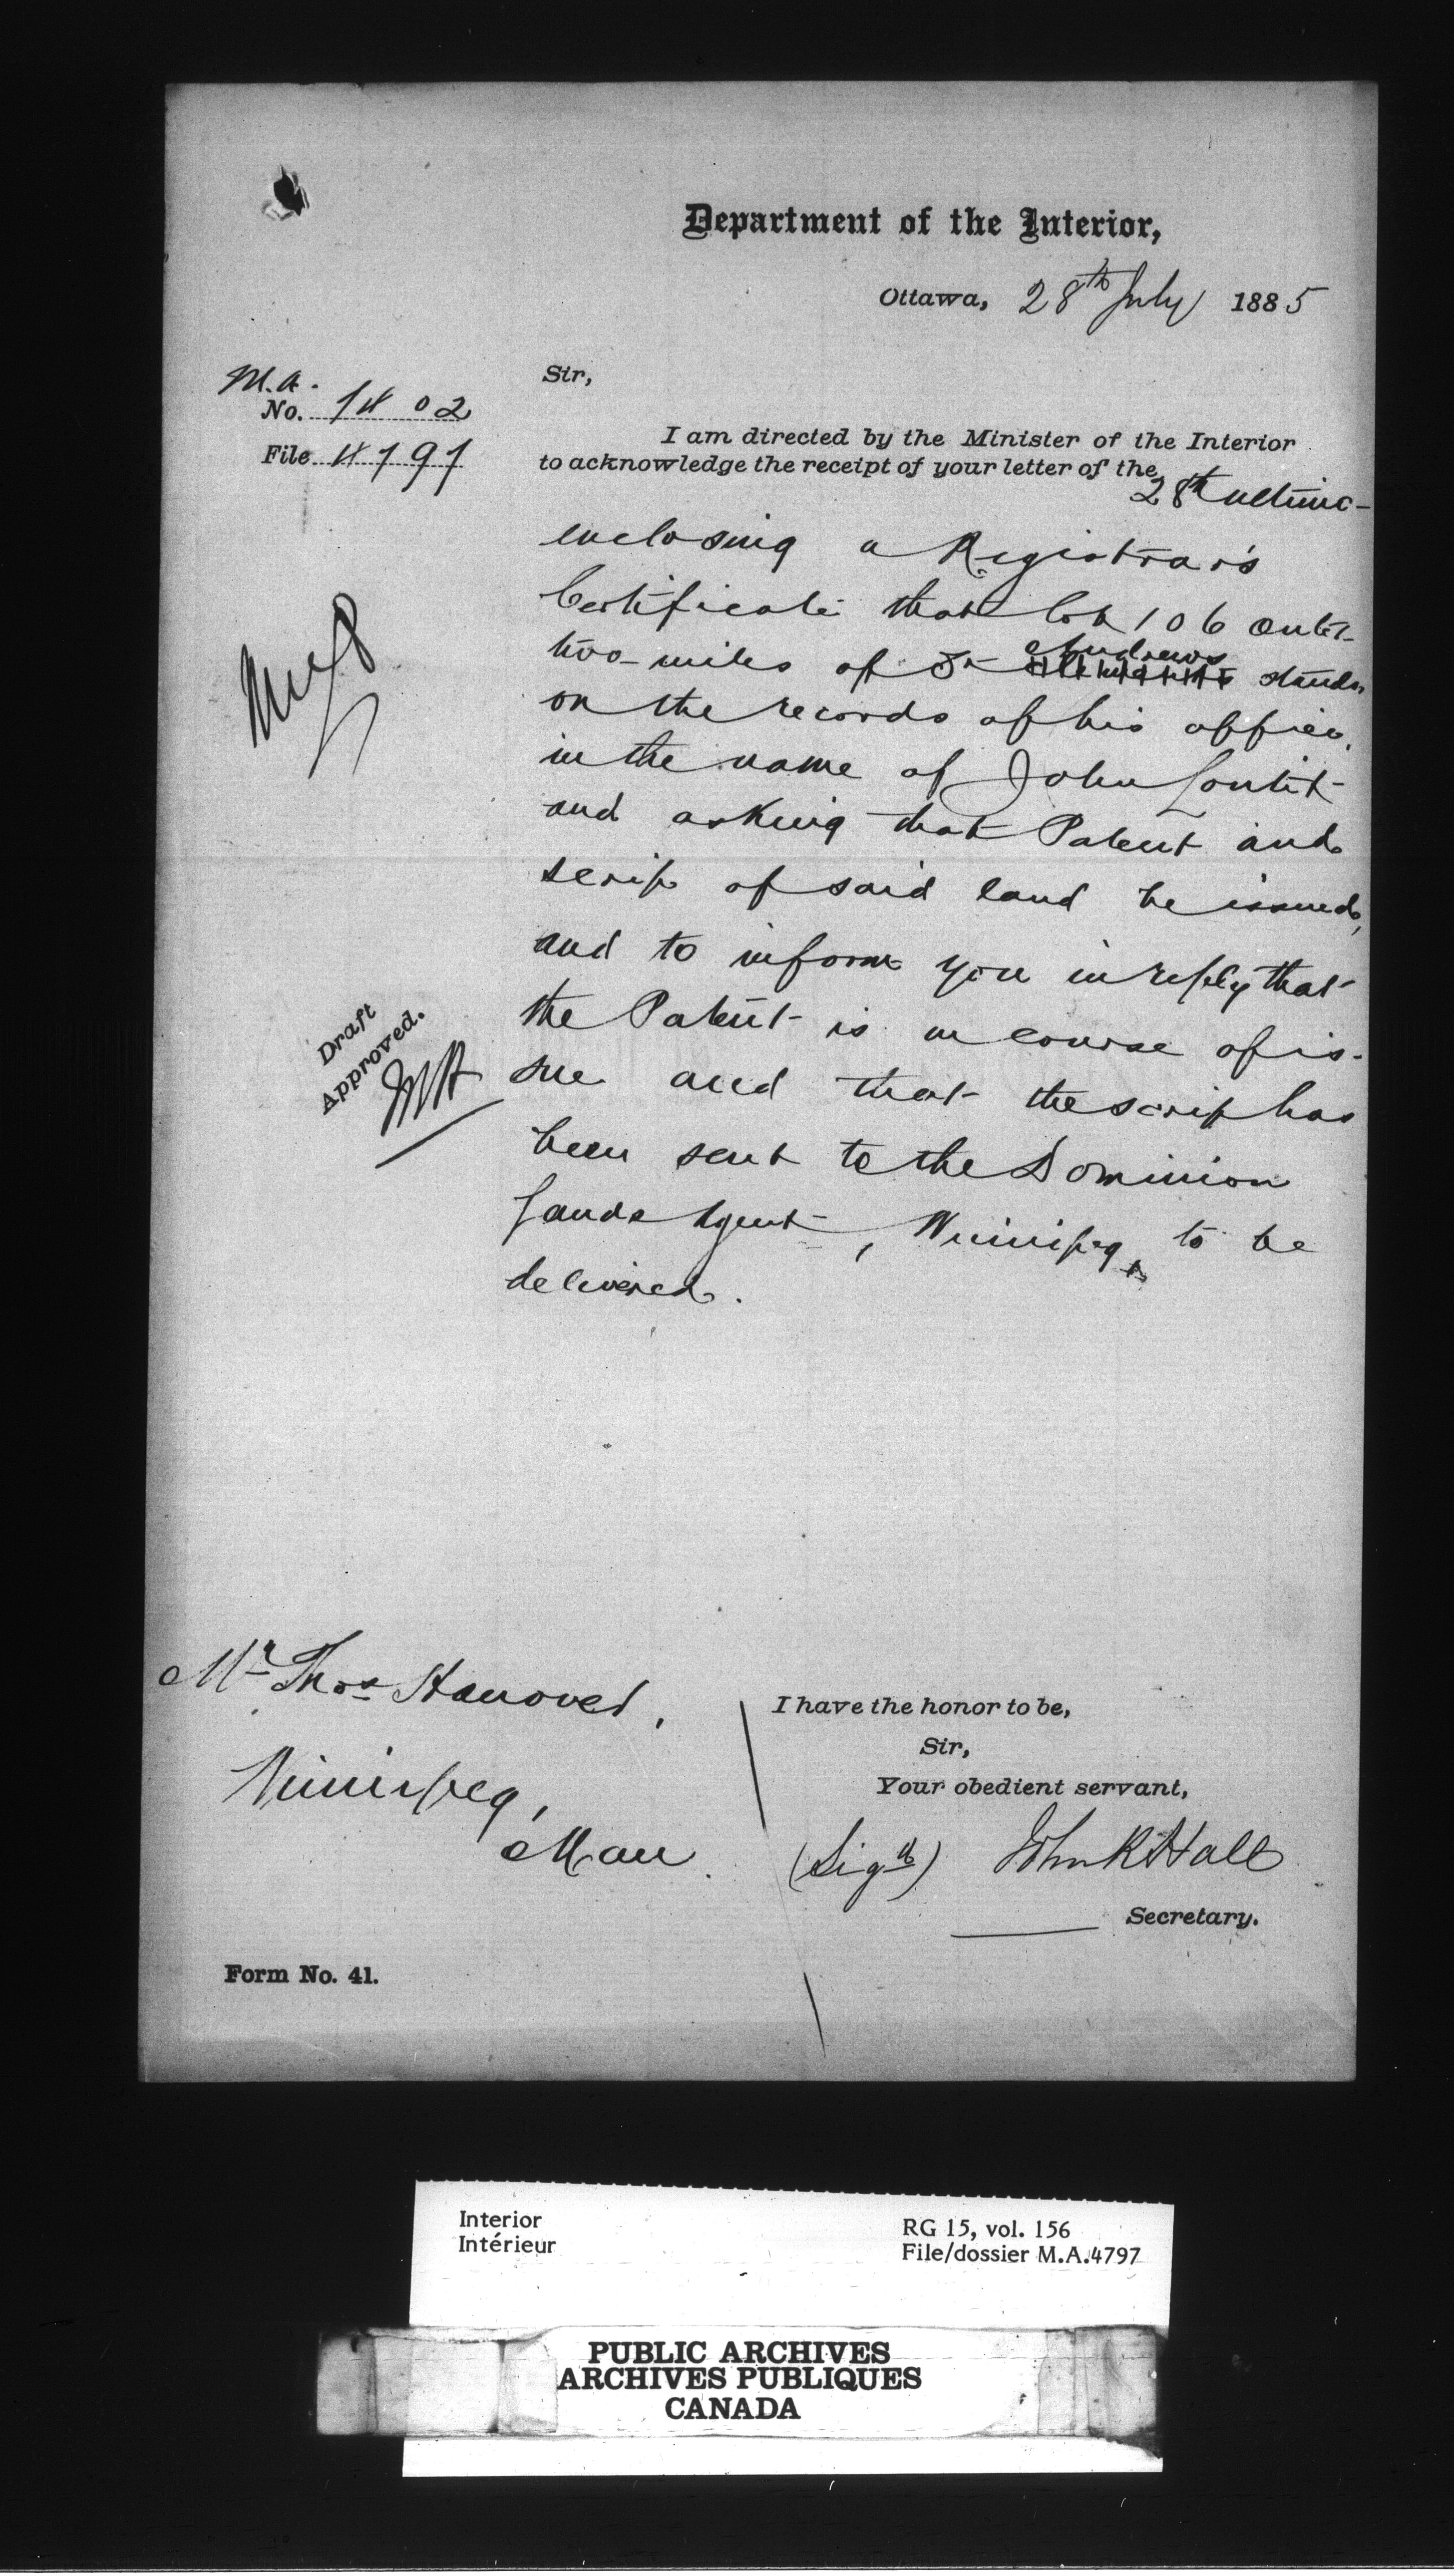 Department of the Interior,
Ottawa, 28th July 1885
M.A.
No. 7402
File 4797
Sir,
I am directed by the Minister of the Interior
to acknowledge the receipt of your letter of the
28th ultimo
enclosing a Registrar's
Certificate that lot 106 outer
two miles of St Andrews stands
on the records of his office,
in the name of John Loutit
and asking that Patent and
scrip of said land be issued,
and to inform you in reply that
the Patent is in course of is-
sue and that the scrip has
been sent to the Dominion
Lands Agent, Winnipeg, to be
delivered.
Draft
Approved.
Mr Thos Hanover,
Winnipeg,
Man.
I have the honor to be,
Sir,
Your obedient servant,
(Sigd) John R Hall
Secretary.
Form No. 41.
Interior
Intérieur
RG 15, vol. 156
File/dossier M.A.4797
PUBLIC ARCHIVES
ARCHIVES PUBLIQUES
CANADA